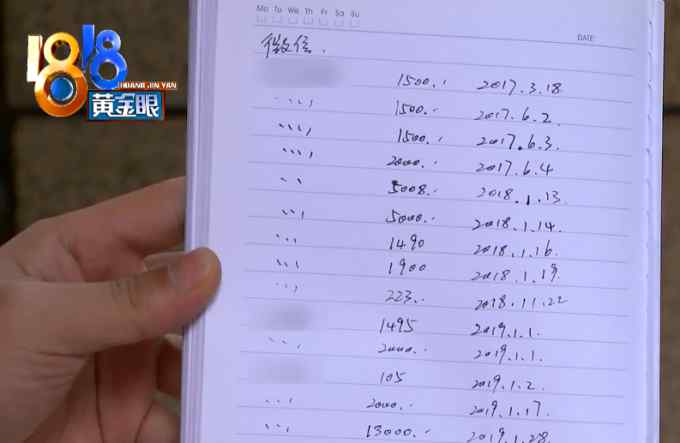 Mo Tu We Th Fr Sa Su
DATE:
微信.
1818
HUANG JIN YAN
黄金眼
1500. 2017.3.18
1500. 2017.6.2.
1500. 2017.6.3.
2000. 2017.6.4
5008. 2018.1.13.
5000. 2018.1.14.
1490 2018.1.16.
1900 2018.1.19.
223. 2018.11.22
1495 2019.1.1.
2000. 2019.1.1.
105 2019.1.2.
2000. 2019.1.17.
13000. 2019.1.28.